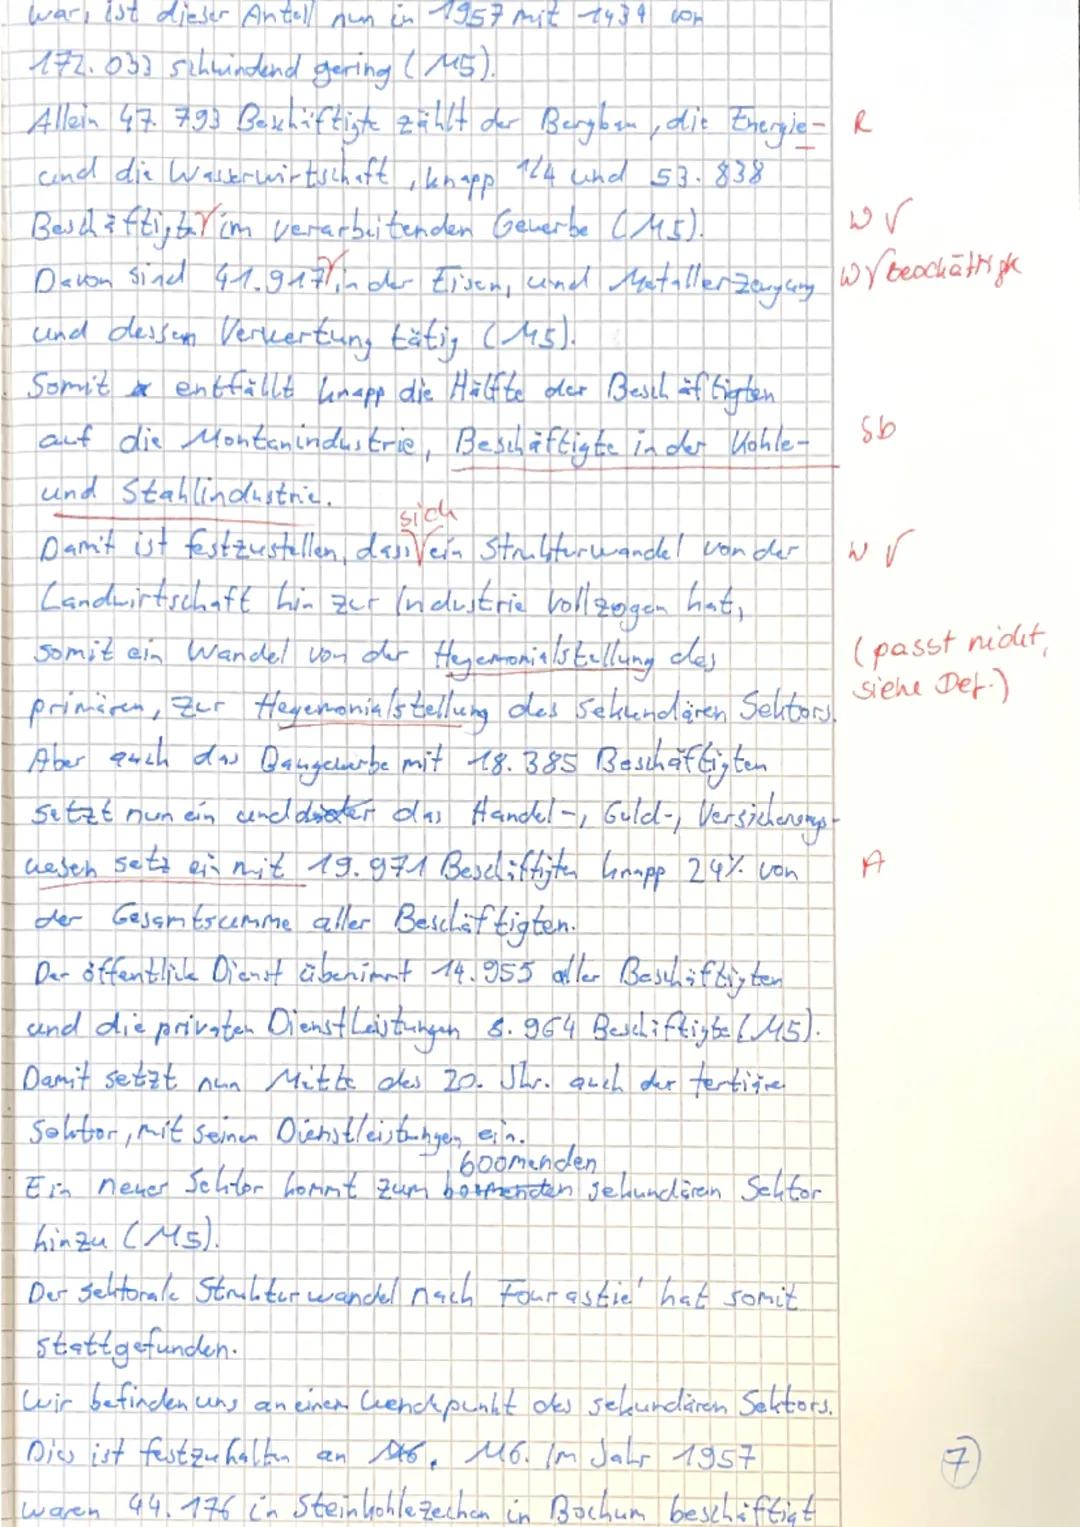 war, ist dieser Anteil nun in 1957 mit 1434 von
172.033 schwindend gering (M5).
Allein 47.793 Beschäftigte zählt der Bergbau, die Energie- R
und die Wasserwirtschaft, knapp 1/4 und 53.838
Beschäftigte √ im verarbeitenden Gewerbe (M5). W √
Davon sind 41.917 √ in der Eisen, und Metallerzeugung W √ beschäftigte
und dessen Verwertung tätig (M5).
Somit entfällt knapp die Hälfte der Beschäftigten
auf die Montanindustrie, Beschäftigte in der Kohle- Sb
und Stahlindustrie.
sich
Damit ist festzustellen, dass √ ein Strukturwandel von der W √
Landwirtschaft hin zur Industrie vollzogen hat,
somit ein Wandel von der Hegemonialstellung des (passt nicht,
primären, zur Hegemonialstellung des sekundären Sektors. siehe Def.)
Aber auch das Baugewerbe mit 18.385 Beschäftigten
setzt nun ein und das Handel-, Geld-, Versicherungs-
wesen setz ein mit 19.971 Beschäftigten knapp 24% von A
der Gesamtsumme aller Beschäftigten.
Der öffentliche Dienst übernimmt 14.955 aller Beschäftigten
und die privaten Dienstleistungen 8.964 Beschäftigte (M5).
Damit setzt nun Mitte des 20. Jhr. auch der tertiäre
Sektor, mit seinen Dienstleistungen ein.
boomenden
Ein neuer Sektor kommt zum boomenden sekundären Sektor
hinzu (M5).
Der sektorale Strukturwandel nach Fourastié hat somit
stattgefunden.
Wir befinden uns an einem Wendepunkt des sekundären Sektors.
Dies ist festzuhalten an M6. M6. Im Jahr 1957
waren 44.176 in Steinkohlezechen in Bochum beschäftigt
7